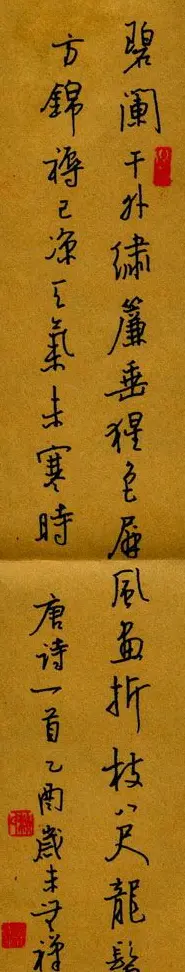 碧阑干外绣簾垂猩色屏风画折枝八尺龍鬚
方錦褥已凉天氣未寒時
唐詩一首乙酉歲末